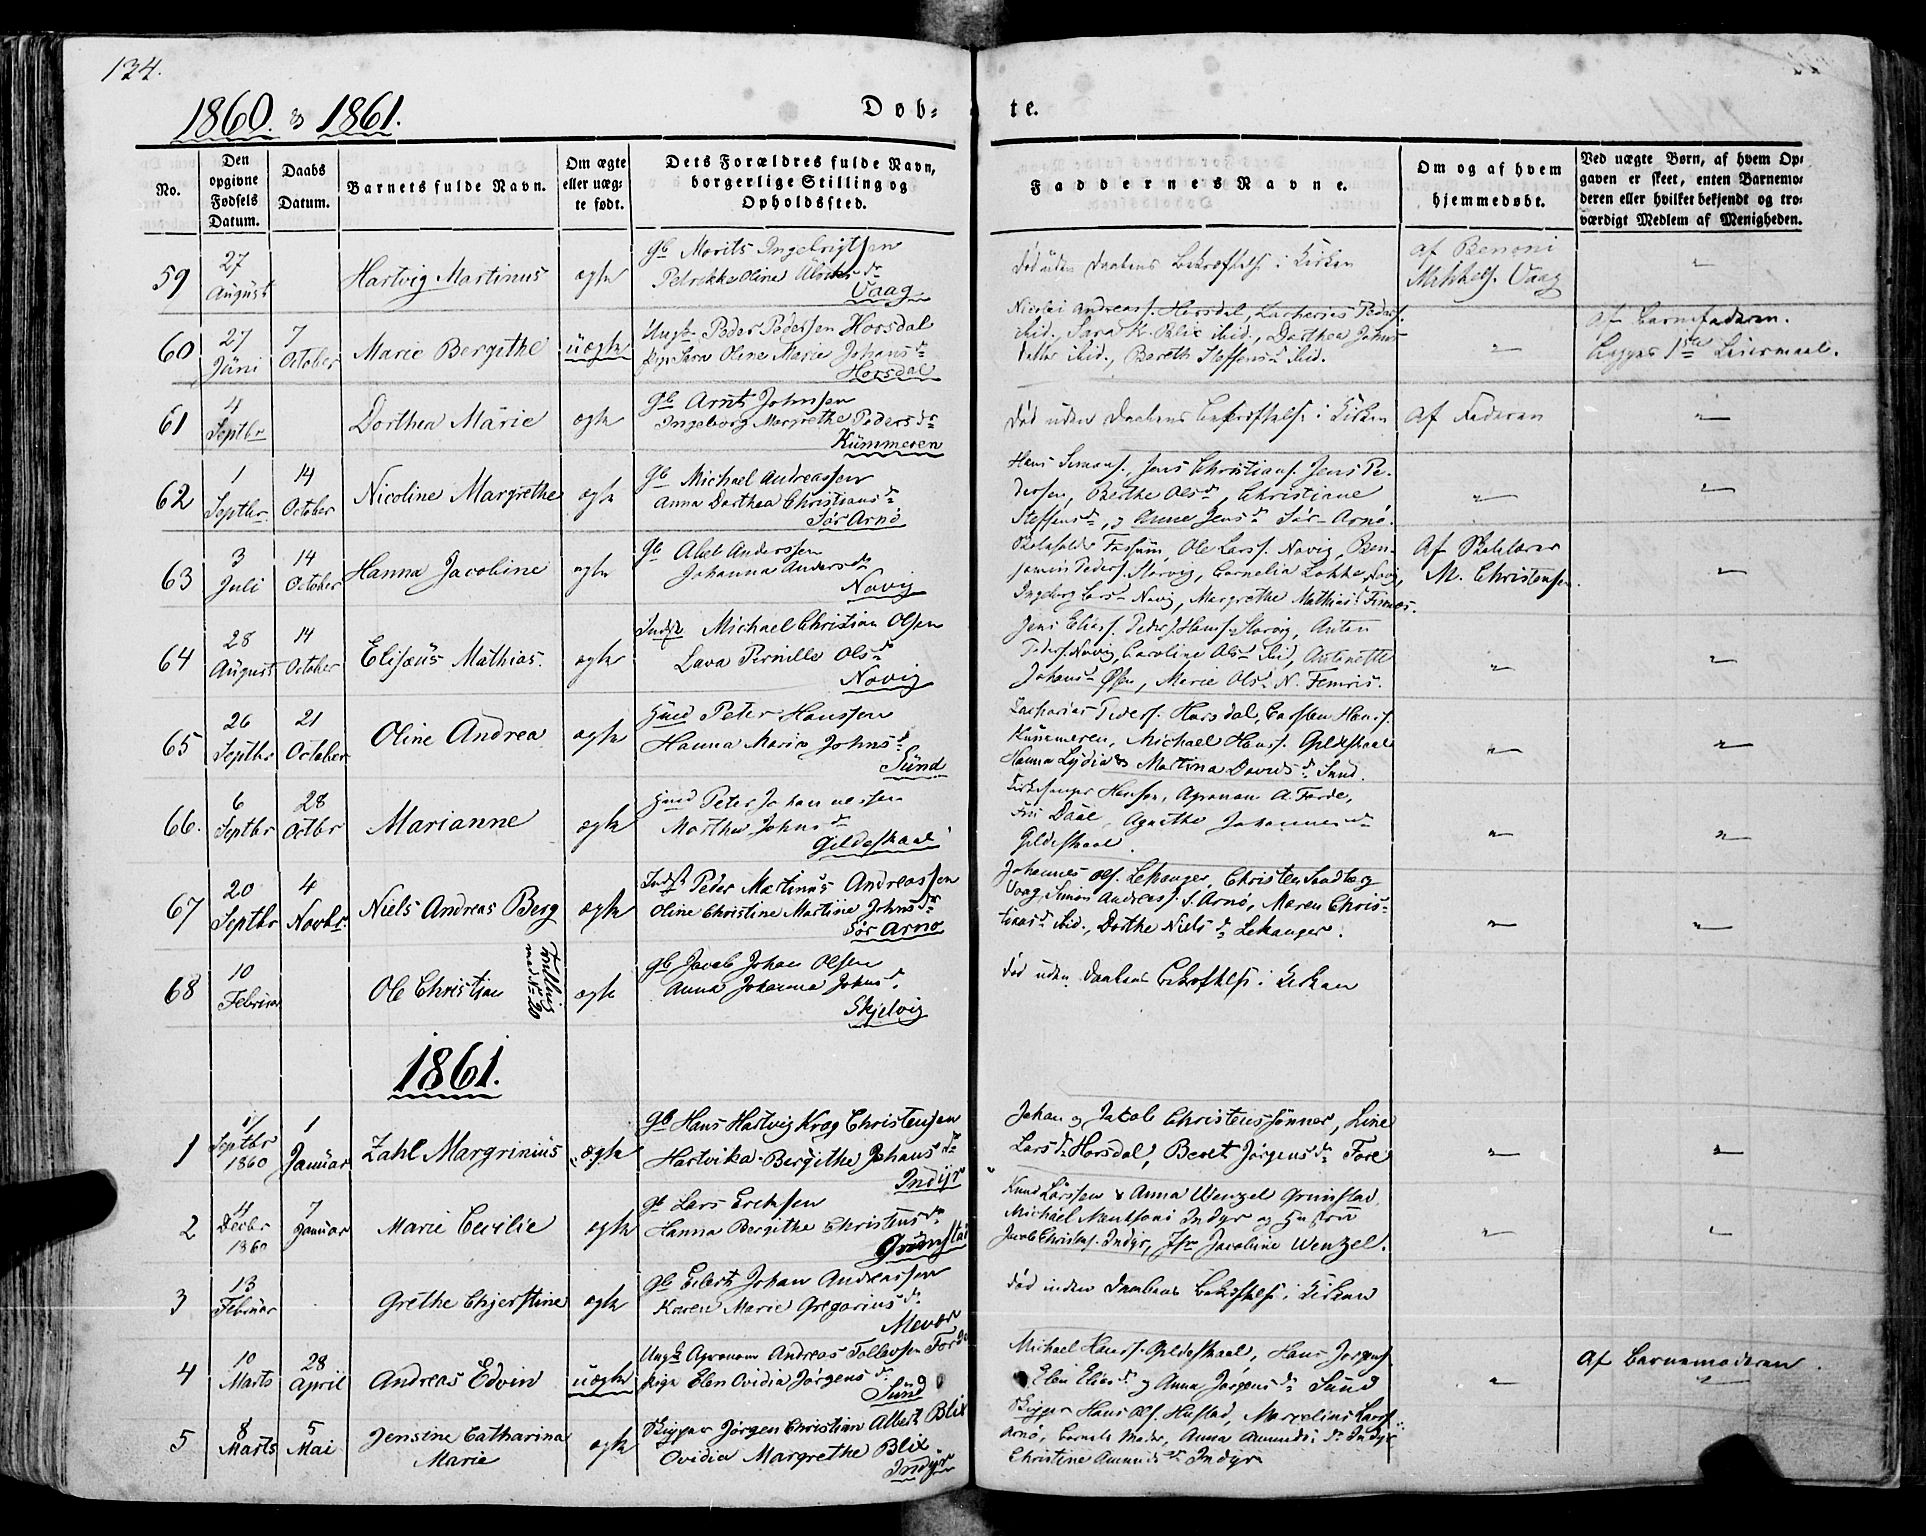 134.
1860. & 1861.
Døb-
te.
No.
Den opgivne Fødsels Datum.
Daabs Datum.
Barnets fulde Navn.
Om ægte eller uægte født.
Dets Forældres fulde Navn, borgerlige Stilling og Opholdssted.
Faddernes Navne.
Om og af hvem hjemmedøbt.
Ved uægte Børn, af hvem Opgaven er skeet, enten Barnemoderen eller hvilket bekjendt og troværdigt Medlem af Menigheden.
59
27 August
Hartvig Martinus
ægte
Gb Morits Ingebrigtsen
Petrikke Oline
Vaag
død uden Daabens Bekræftelse i Kirken
af Benoni
Mikkels. Vaag
"
60
27 Juni
7 October
Marie Bergithe
uægte
Ungk. Peder Pedersen Horsdal
Pige Sara Oline Marie Johansdr
Horsdal
Nicolai Andreass. Horsdal, Zacharias Peders.
ibid., Sara K. Blix ibid., Dorthea Johns
datter ibid., Bereth Steffensdr ibid.
"
af Barnefaderen.
begges 1ste Leiermaal.
61
4 Septbr
Dorthea Marie
ægte
Gb Arnt Johnsen
Ingeborg Margrethe Pedersdr
Kummeren
død uden Daabens Bekræftelse i Kirken
af Faderen
"
62
1 Septbr.
14 October
Nicoline Margrethe
ægte
Gb Michael Andreassen
Anna Dorthea Christiansdr
Sør Arnø
Hans Simons., Jens Christians. Jens Pe-
dersen, Berthe Olsdr, Christiane
Steffensdr, og Anne Jensdr Sør-Arnø.
"
"
63
3 Juli
14 October
Hanna Jacobine
ægte
Gb Abel Anderssen
Johanna Andersdr
Novig
Ole Larss. Novig, Ben-
jamin Peders. Storvig, Cornelia Løkke Novig,
Ingeborg Larsdr Novig, Margrethe Mathiasdr
Af Skolelærer
M. Christensen.
"
64
28 August
14 October
Elisæus Mathias.
ægte
Indst Michael Christian Olsen
Lava Pernille Olsdr
Novig
Jens Elias. Peder J. Hans. Storvig, Anton
Peders. Novig, Caroline Olsdr ibid, Antonette
Johansdr Øsen, Marie Olsdr N. Femris.
"
"
65
26 Septbr
21 October
Oline Andrea
ægte
Husmd Peter Hanssen
Hanna Marie Johnsdr
Sund
Zacharias Peders. Horsdal, Carsten Hans.
Kummeren, Michael Hans. Gildeskaal
Hanna Lydia & Martina Davidsdr Sund.
"
"
66.
6 Septbr
28 Octbr
Marianne
ægte
Husmd Peter Johannessen
Marthea Johnsdr
Gildeskaal
Kirkesanger Hansen, Agronom A. Forde,
Daae, Agnethe Johannesdr
Gildeskaal.
"
"
67
20 Septbr
4 Novbr.
Niels Andreas Berg
ægte
Indst Peder Martinus Andreassen
Oline Christine Martine Johnsdr
Sør Arnø
Johannes Ols. Lekanger, Christen Sandberg
Vaag, Simon Andreas. S. Arnø, Maren Chris-
tiansdr ibid., Dorthe Nielsdr Lekanger.
"
"
68
10 Februar
Ole Christian
Tvilling
med No 20
ægte
Gb Jacob Johan Olsen
Anna Johanna Johnsdr
Skjelvig
død uden Daabens Bekræftelse i Kirken
1861.
1
Septbr 1860
1 Januar
Zahl Margrinius
ægte
Gb Hans Hartvig Krog Christensen
Hartvika Bergithe Johansdr
Indyr
Johan og Jakob Christenssønner, Line
Larsdr Horsdal, Beret Jørgensdr Fore
"
"
2
11 Decbr 1860
7 Januar
Marie Cecilie
ægte
Gb Lars Ericksen
Hanna Bergithe Christensdr
Grønstad
Knud Larssen & Anna Wenzel Grimstad
Michael Indyr og Hustru
Jacob Christens. Indyr, Jfr Jacobine Wenzel.
"
"
3
13 Februar
Grethe Chjerstine
ægte
Gb Eilert Johan Andreassen
Karen Marie Gregoriusdr
Mevær
død inden Daabens Bekræftelse i Kirken
4
10 Marts
28 April
Andreas Edvin
uægte
Ungk Agronom Andreas Tollevsen Forde
Pige Elen Ovidia Jørgensdr
Sund
Michael Hans. Gildeskaal, Hans Jørgens.
Elen Eliasdr og Anna Jørgensdr Sund
"
Af Barnemoderen.
"
5
8 Marts
5 Mai
Jensine Catharina
Marie
ægte
Skipper Jørgen Christian Albert Blix
Ovidia Margrethe Blix
Indyr
Skipper Hans Ols. Hustad, Marcelius Lars.
Arnø, Anna Amundsdr Indyr
Christine Amundsdr Indyr